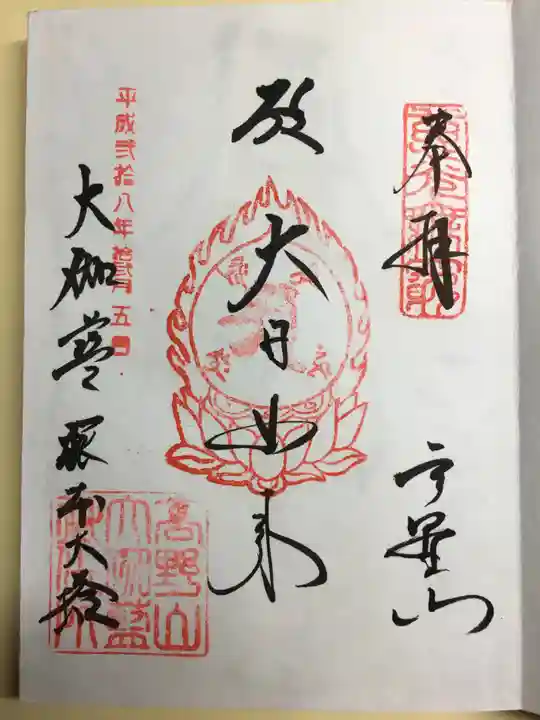 奉拝
高野山
大日如来
平成弐拾八年拾弐月五日
大伽藍 根本大塔
高野山
大伽藍